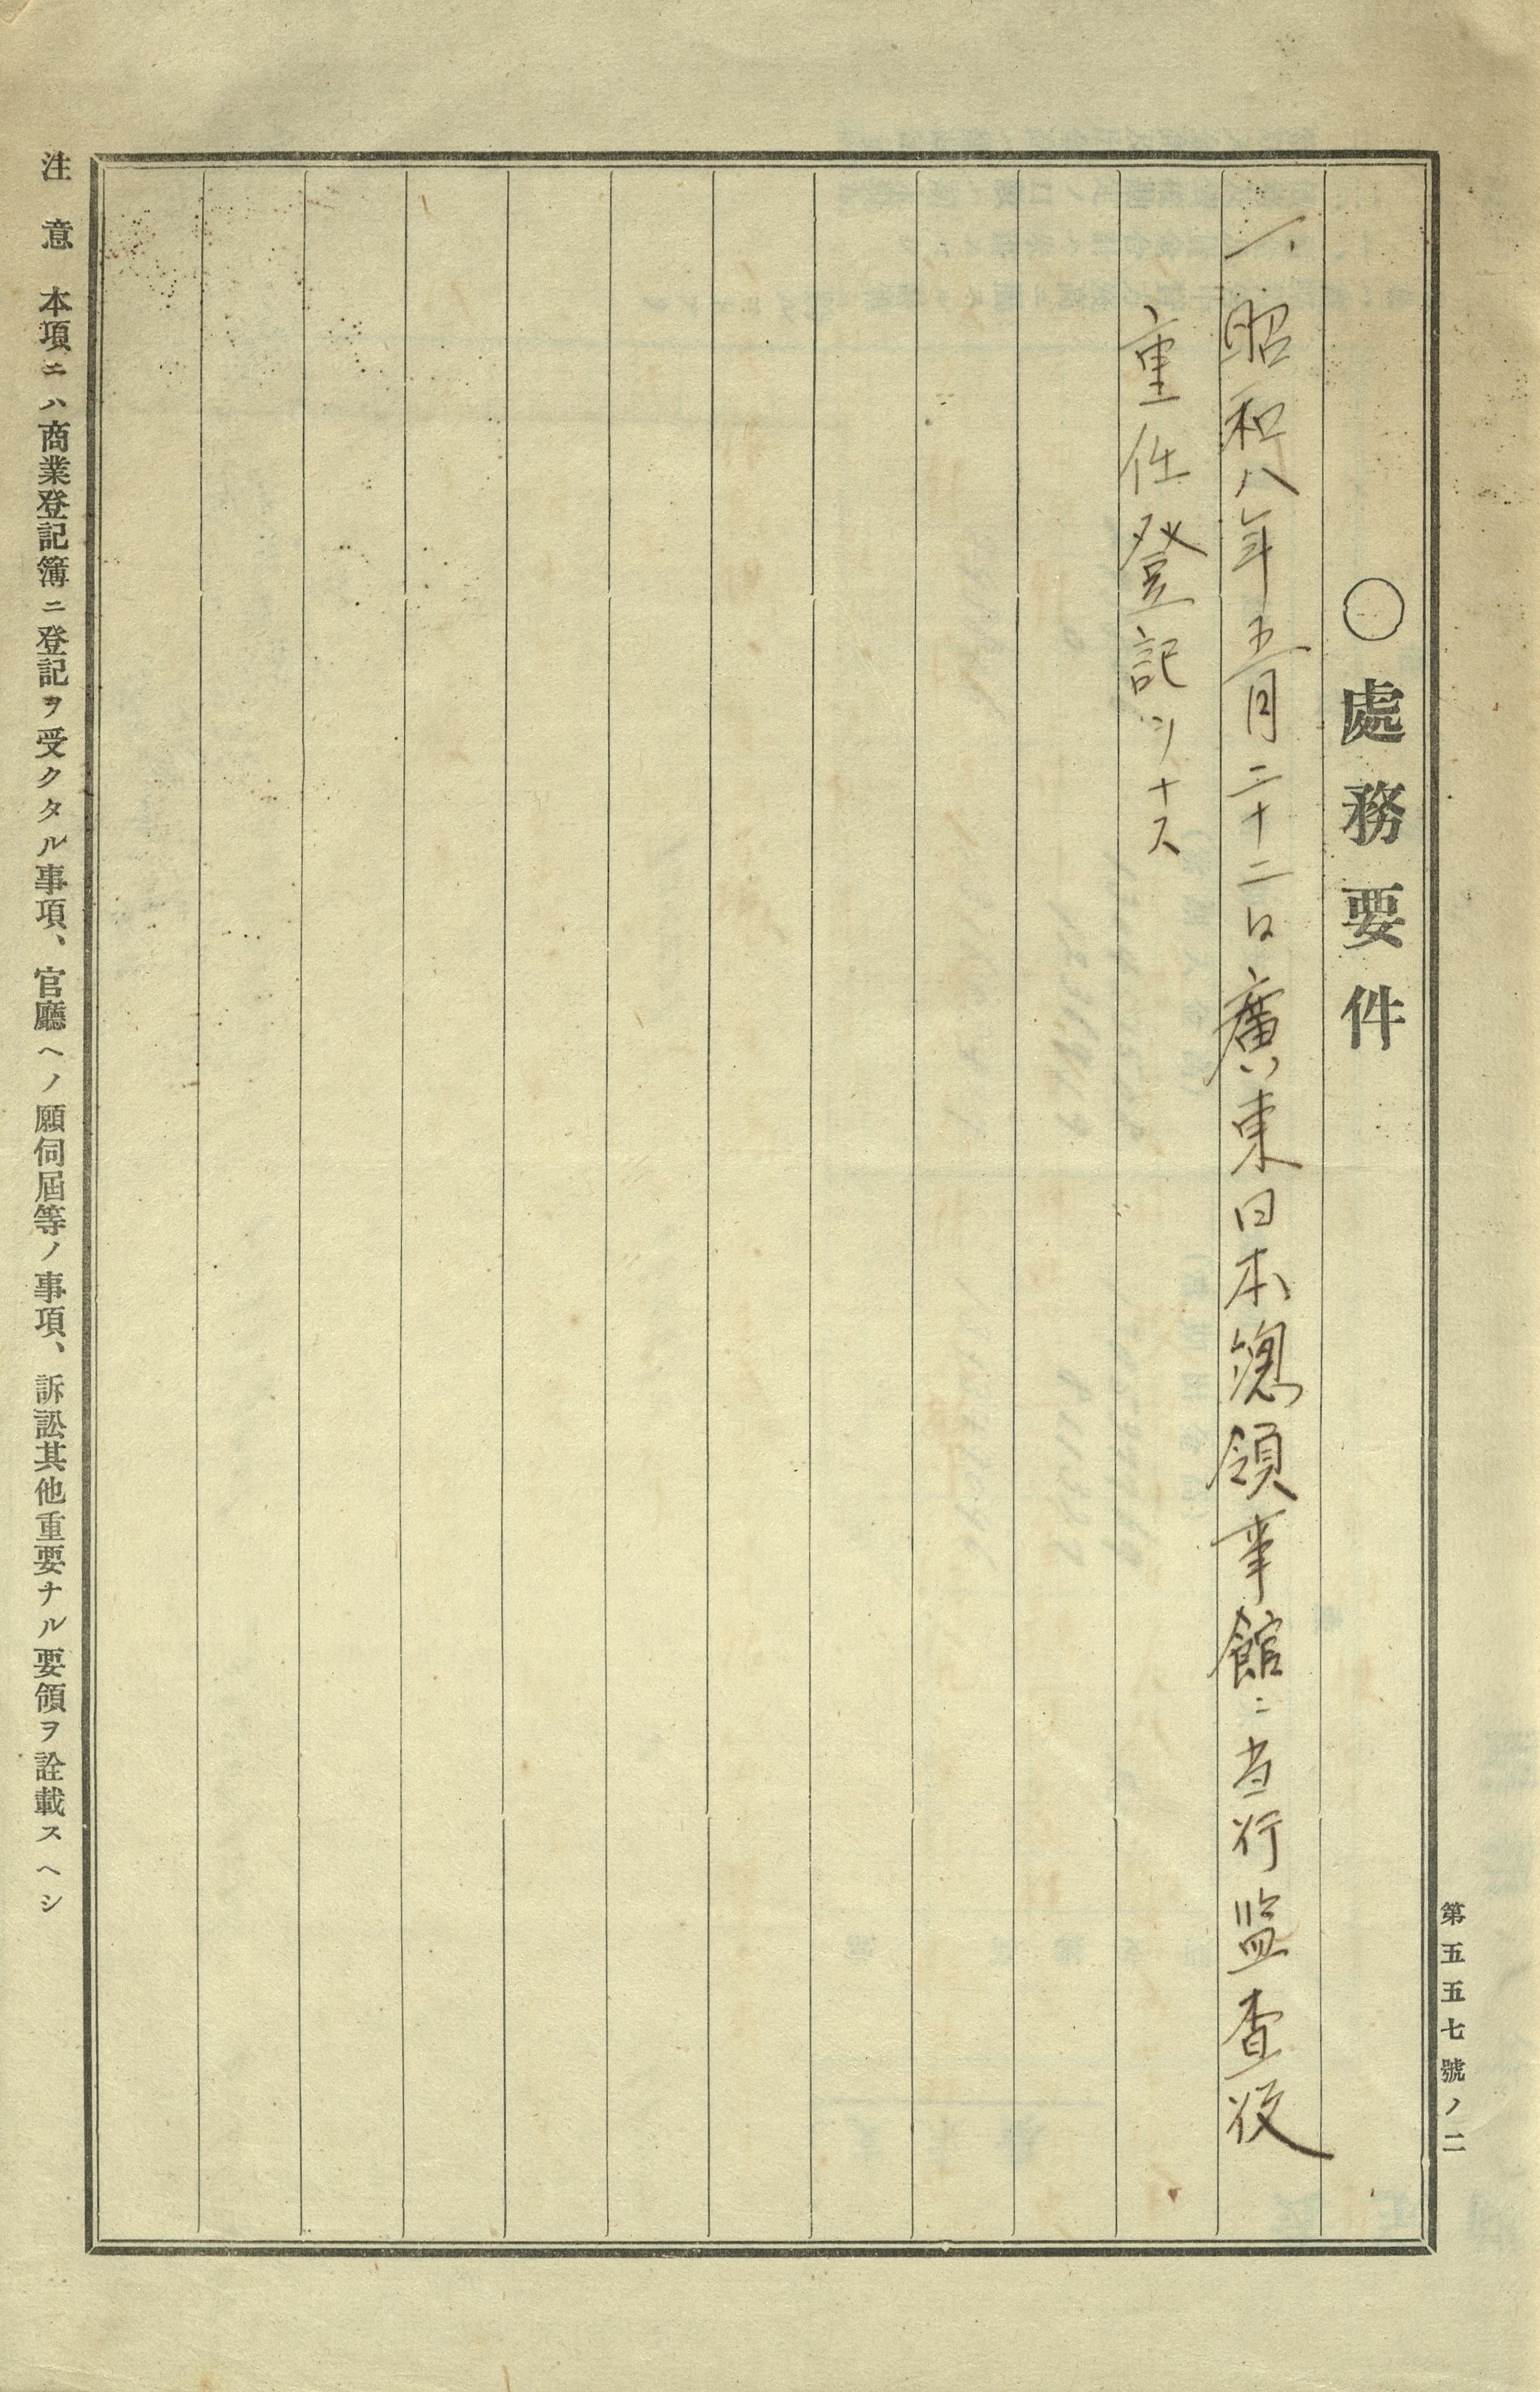 第五五七號ノ二
〇處務要件
一、昭和八年五月二十二日廣東日本總領事館ニ当行監査役
重任登記ヲナス
注意 本項ニハ商業登記簿ニ登記ヲ受クタル事項、官廳ヘノ願伺屆等ノ事項、訴訟其他重要ナル要領ヲ詮載スヘシ